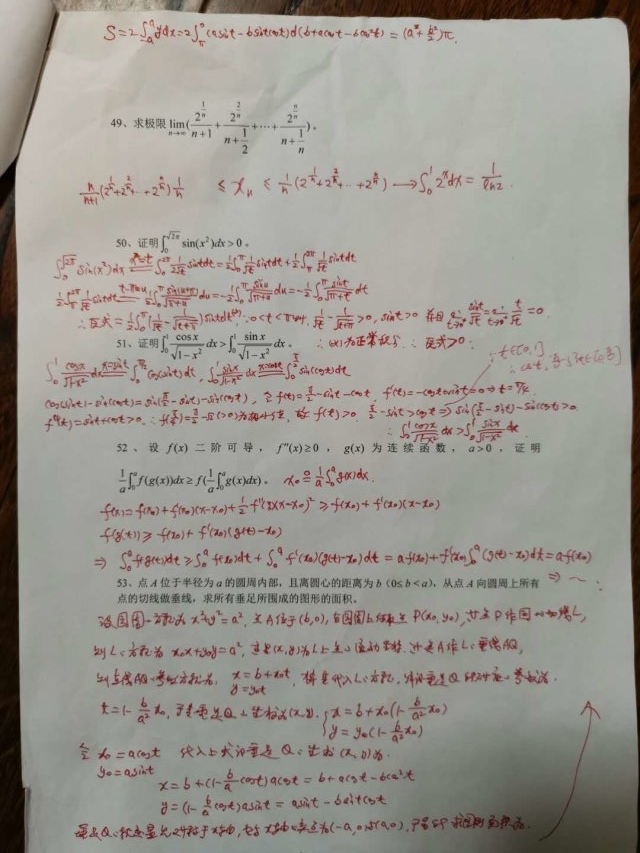 S = 2∫_{-a}^{a} ydx = 2∫_π^0 (asint - bsintcost)d(b+acost-bcos²t) = (a²+b²/2)π.
49、求极限 lim_{n→∞}(2^{1/n}/(n+1) + 2^{2/n}/(n+1/2) + ⋯ + 2^{n/n}/(n+1/n))。
n/(n+1)(2^{1/n}+2^{2/n}+..+2^{n/n})1/n ≤ x_n ≤ 1/n(2^{1/n}+2^{2/n}+..+2^{n/n}) → ∫_0^1 2^x dx = 1/ln2.
50、证明∫_0^{√2π} sin(x²)dx > 0。
∫_0^{√2π} sin(x²)dx x²=t ∫_0^{2π} 1/(2√t) sintdt = 1/2∫_0^π 1/√t sintdt + 1/2∫_π^{2π} 1/√t sintdt
1/2∫_π^{2π} 1/√t sintdt t-π=u = -1/2∫_0^π sinu/√(π+u) du = -1/2∫_0^π sint/√(π+t) dt
∴ 原式 = 1/2∫_0^π (1/√t - 1/√(t+π)) sintdt, ∵ 0<t<π时, 1/√t - 1/√(t+π) > 0, sint>0 且 sint/√t = t/√t = 0.
51、证明∫_0^1 cosx/√(1-x²) dx > ∫_0^1 sinx/√(1-x²) dx。 ∴ 原式>0.
∫_0^1 cosx/√(1-x²) dx x=sint ∫_0^{π/2} cos(sint)dt, ∫_0^1 sinx/√(1-x²) dx x=cost ∫_0^{π/2} sin(cost)dt
cos(sint)-sin(cost) = sin(π/2-sint)-sin(cost), 令f(t)=π/2-sint-cost, f'(t)=-cost+sint=0⇒t=π/4.
f''(t)=sint+cost>0. ∴ f(π/4)=π/2-√2(>0)为极小值, 故 f(t)>0. π/2-sint>cost ⇒ sin(π/2-sint)-sin(cost)>0
∴ ∫_0^1 cosx/√(1-x²) dx > ∫_0^1 sinx/√(1-x²) dx.
52、设 f(x) 二阶可导，f″(x)≥0，g(x) 为连续函数，a>0，证明
1/a∫_0^a f(g(x))dx ≥ f(1/a∫_0^a g(x)dx)。 x₀ = 1/a∫_0^a g(x)dx.
f(x)=f(x₀)+f'(x₀)(x-x₀)+1/2 f''(ξ)(x-x₀)² ≥ f(x₀)+f'(x₀)(x-x₀)
f(g(t)) ≥ f(x₀)+f'(x₀)(g(t)-x₀)
⇒ ∫_0^a f(g(t))dt ≥ ∫_0^a f(x₀)dt + ∫_0^a f'(x₀)(g(t)-x₀)dt = af(x₀)+f'(x₀)∫_0^a (g(t)-x₀)dt = af(x₀)
53、点 A 位于半径为 a 的圆周内部，且离圆心的距离为 b（0≤b<a），从点 A 向圆周上所有
点的切线做垂线，求所有垂足所围成的图形的面积。
设圆周方程为 x²+y²=a², 点A位于(b,0), 在圆周上任取点 P(x₀,y₀), 过点P作圆的切线L,
则L方程为 x₀x+y₀y=a², 过点A作L垂线AQ,
则直线AQ参数方程为: x=b+x₀t, y=y₀t 代入L方程, 得垂足Q
t=1-b/a² x₀, 于是垂足Q坐标为(x,y). { x=b+x₀(1-b/a² x₀) y=y₀(1-b/a² x₀)
令 x₀=acost y₀=asint 代入上式得垂足Q坐标(x,y)为:
x=b+(1-b/a cost)acost=b+acost-bcos²t
y=(1-b/a cost)asint=asint-bsintcost